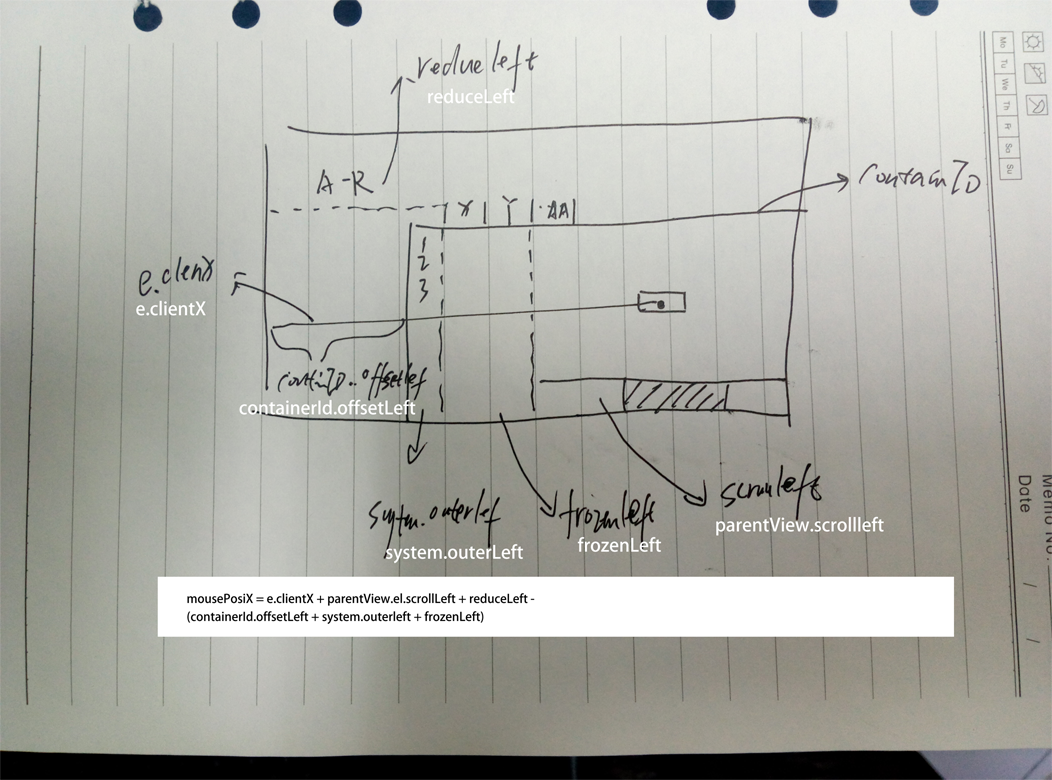 reduceleft
reduceLeft
A-R
X Y AA
containID
1
2
3
e.clienX
e.clientX
containID..offsetlef
containerId.offsetLeft
system.outerlef
system.outerLeft
frozenleft
frozenLeft
scrollleft
parentView.scrollleft
mousePosiX = e.clientX + parentView.el.scrollLeft + reduceLeft -
(containerId.offsetLeft + system.outerleft + frozenLeft)
Mo Tu We Th Fr Sa Su
Memo No.
Date / /